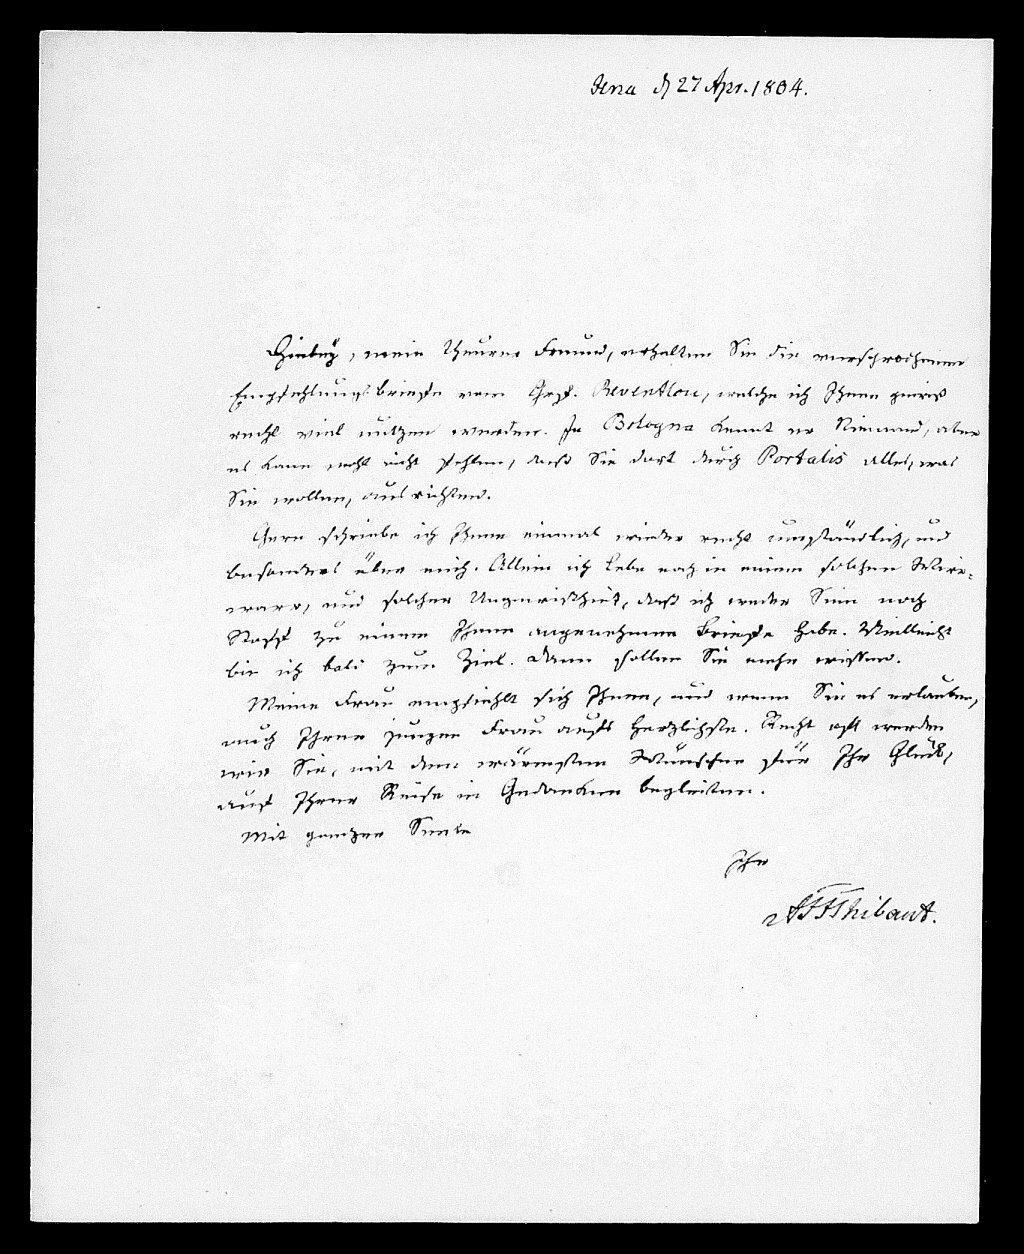 Jena d 27 Apr. 1804.
Hiebey, mein theurer Freund, erhalten Sie die versprochenen
Empfehlungsbriefe vom Graf. Reventlou, welche ich Ihnen gewiß
recht viel nützen werden. In Bologna kennt er Niemand, aber
es kann wohl nicht fehlen, daß Sie dort durch Portalis alles, was
Sie wollen, ausrichten.
Gern schriebe ich Ihnen einmal wieder recht umständlich, und
besonders über mich. Allein ich lebe noch in einem solchen Wirr-
warr, und solcher Ungewißheit, daß ich weder Sinn noch
Stoff zu einem Ihnen angenehmen Briefe habe. Vielleicht
bin ich bald zum Ziel. Dann sollen Sie mehr wissen.
Meine Frau empfiehlt sich Ihnen, und wenn Sie es erlauben,
auch Ihrer jungen Frau aufs Herzlichste. Recht oft werden
wir Sie, mit den wärmsten Wünschen für Ihr Glück,
auf Ihrer Reise in Gedanken begleiten.
Mit ganzer Seele
Ihr
AFJThibaut.